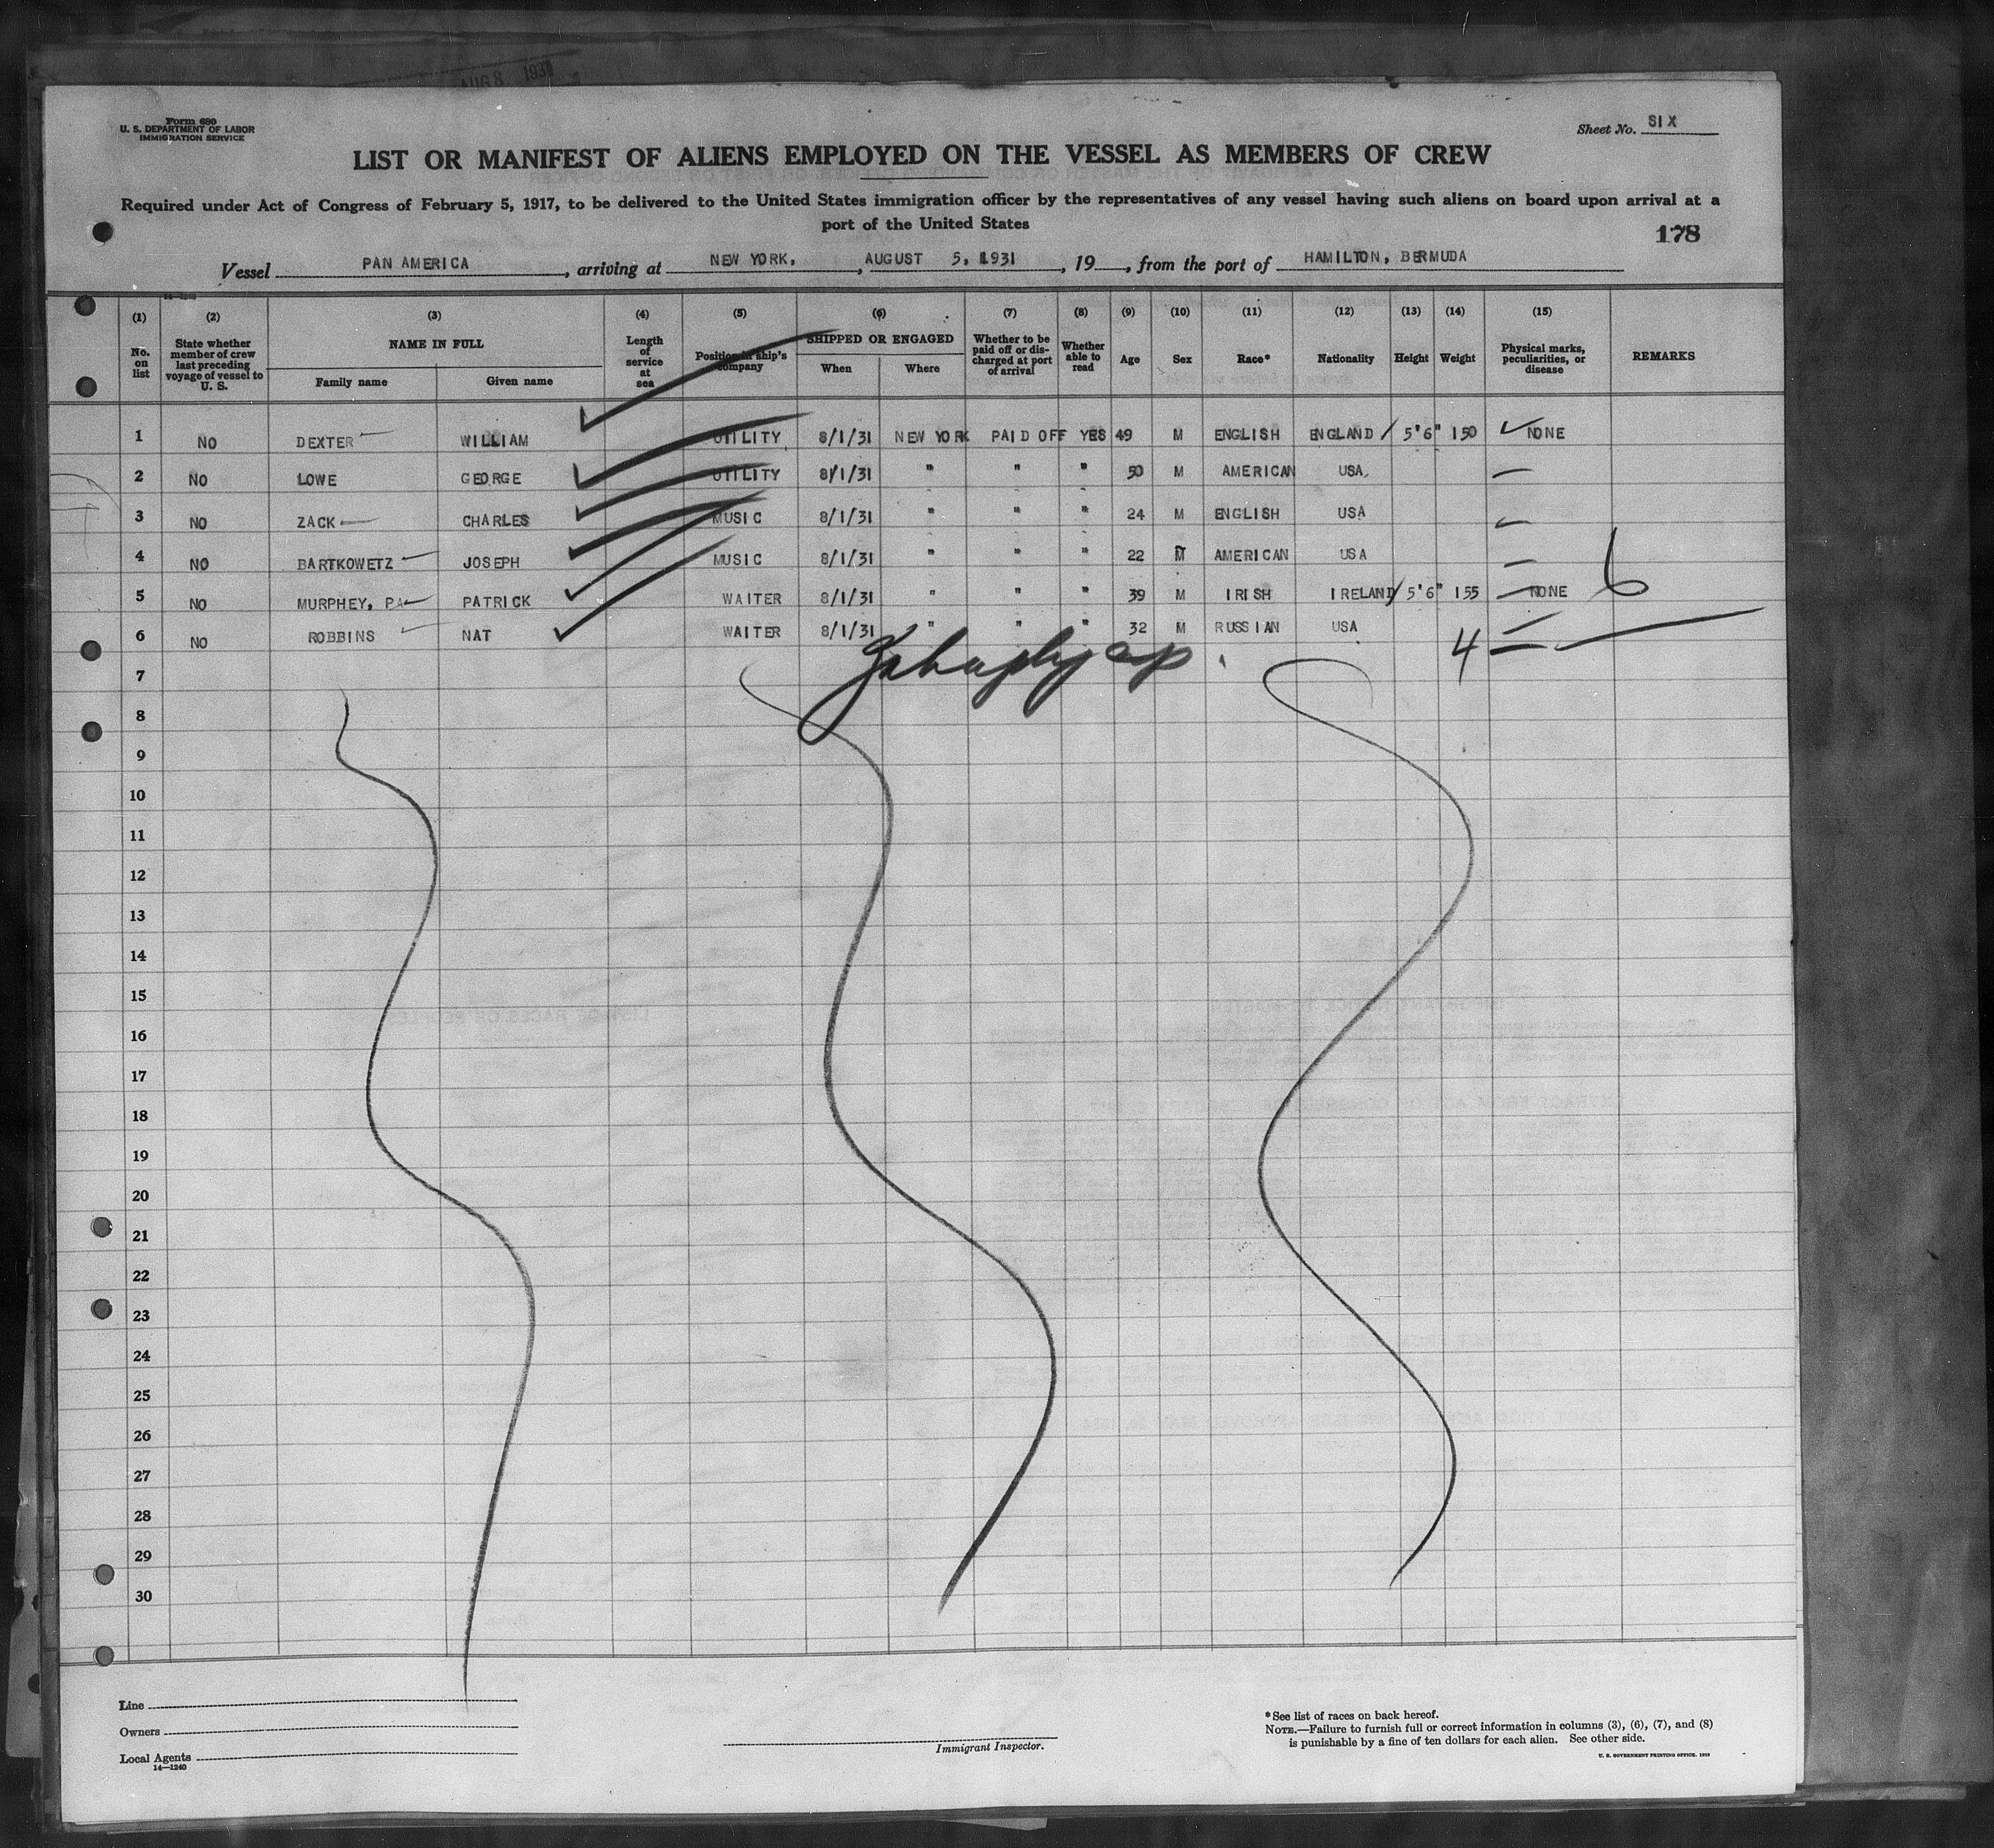 AUG 8 1931
Form 680
U. S. DEPARTMENT OF LABOR
IMMIGRATION SERVICE
Sheet No. SIX
LIST OR MANIFEST OF ALIENS EMPLOYED ON THE VESSEL AS MEMBERS OF CREW
Required under Act of Congress of February 5, 1917, to be delivered to the United States immigration officer by the representatives of any vessel having such aliens on board upon arrival at a
port of the United States
178
Vessel PAN AMERICA, arriving at NEW YORK, AUGUST 5, 1931, 19, from the port of HAMILTON, BERMUDA
(1) (2) (3) (4) (5) (6) (7) (8) (9) (10) (11) (12) (13) (14) (15)
No. on list
State whether member of crew last preceding voyage of vessel to U. S.
NAME IN FULL
Family name Given name
Length of service at sea
Position in ship's company
SHIPPED OR ENGAGED
When Where
Whether to be paid off or discharged at port of arrival
Whether able to read
Age
Sex
Race*
Nationality
Height
Weight
Physical marks, peculiarities, or disease
REMARKS
1 NO DEXTER WILLIAM UTILITY 8/1/31 NEW YORK PAID OFF YES 49 M ENGLISH ENGLAND 5'6" 150 NONE
2 NO LOWE GEORGE UTILITY 8/1/31 " " " 50 M AMERICAN USA
3 NO ZACK CHARLES MUSIC 8/1/31 " " " 24 M ENGLISH USA
4 NO BARTKOWETZ JOSEPH MUSIC 8/1/31 " " " 22 M AMERICAN USA
5 NO MURPHEY, PA PATRICK WAITER 8/1/31 " " " 39 M IRISH IRELAND 5'6" 155 NONE 6
6 NO ROBBINS NAT WAITER 8/1/31 " " " 32 M RUSSIAN USA
4
7
8
9
10
11
12
13
14
15
16
17
18
19
20
21
22
23
24
25
26
27
28
29
30
Line
Owners
Local Agents
14—1240
Immigrant Inspector.
*See list of races on back hereof.
NOTE.—Failure to furnish full or correct information in columns (3), (6), (7), and (8)
is punishable by a fine of ten dollars for each alien. See other side.
U. S. GOVERNMENT PRINTING OFFICE.